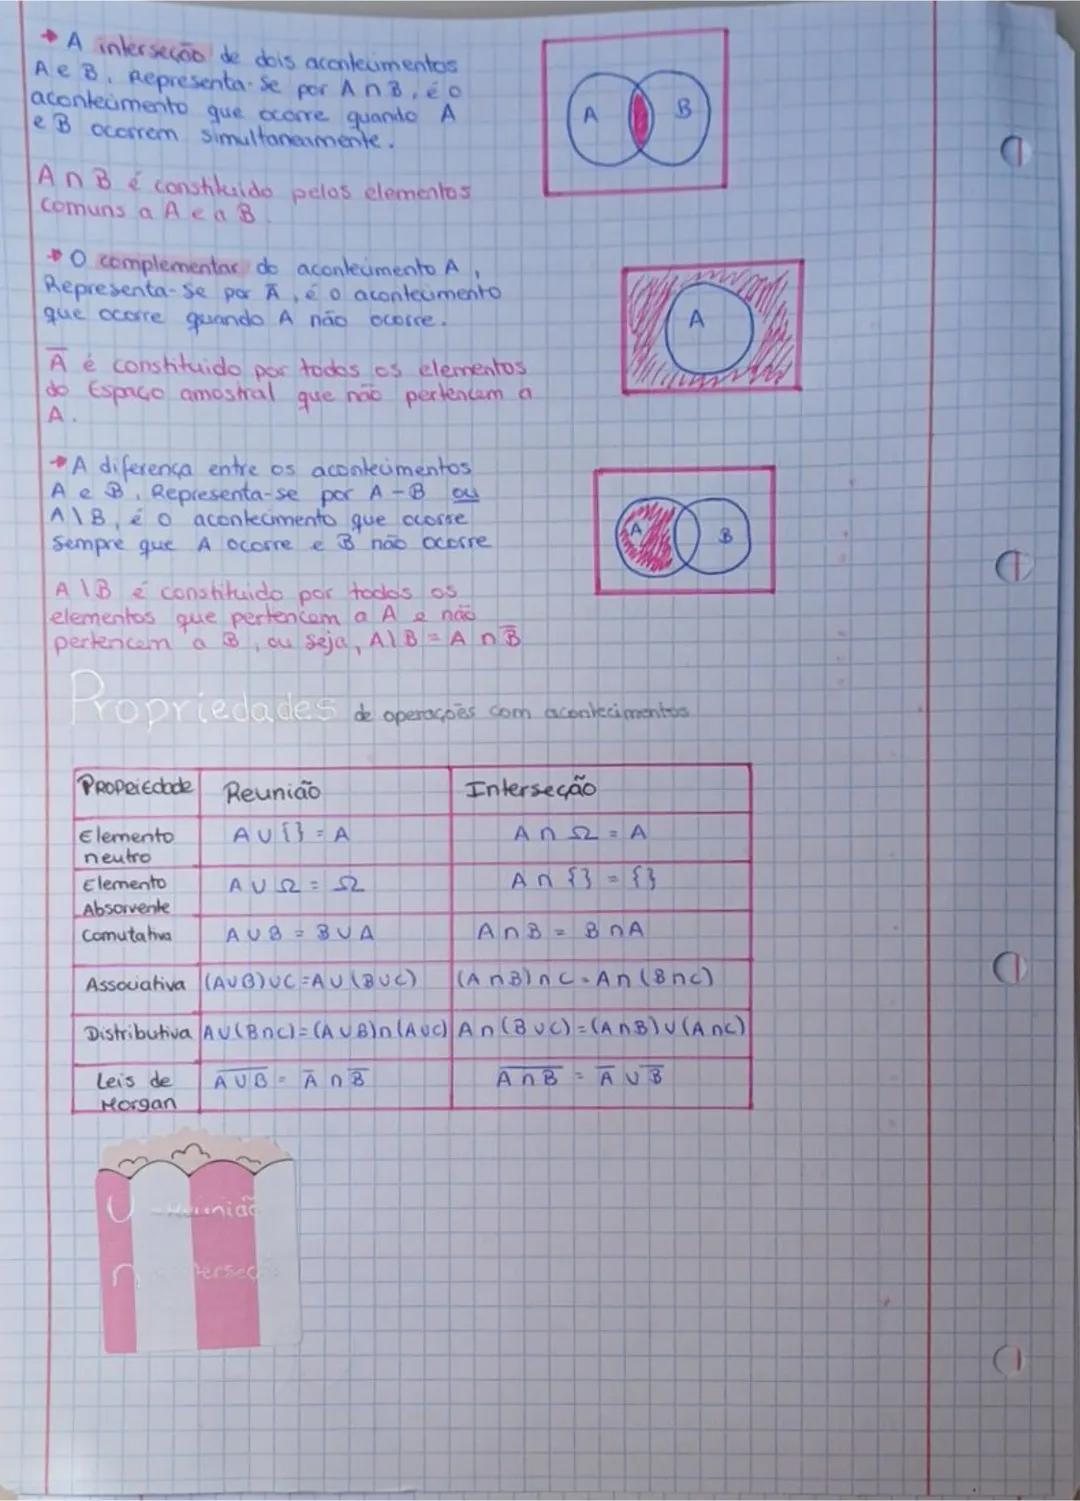 → A interseção de dois acontecimentos
A e B, Representa-se por A ∩ B, é o
acontecimento que ocorre quando A
e B ocorrem simultaneamente.
A ∩ B é constituido pelos elementos
comuns a A e a B.
A
B
→ O complementar do acontecimento A,
Representa-se por A̅, é o acontecimento
que ocorre quando A não ocorre.
A̅ é constituido por todos os elementos
do Espaço amostral que não pertencem a
A.
A
→ A diferença entre os acontecimentos
A e B, Representa-se por A - B ou
A \ B, é o acontecimento que ocorre
sempre que A ocorre e B não ocorre
A \ B é constituido por todos os
elementos que pertencem a A e não
pertencem a B, ou seja, A \ B = A ∩ B̅
A
B
Propriedades de operações com acontecimentos
Propriedade Reunião Interseção
Elemento neutro A ∪ {} = A A ∩ Ω = A
Elemento Absorvente A ∪ Ω = Ω A ∩ {} = {}
Comutativa A ∪ B = B ∪ A A ∩ B = B ∩ A
Associativa (A∪B)∪C = A∪(B∪C) (A∩B)∩C = A∩(B∩C)
Distributiva A∪(B∩C)=(A∪B)∩(A∪C) A∩(B∪C)=(A∩B)∪(A∩C)
Leis de Morgan A̅ ̅∪̅ ̅B̅ = A̅ ∩ B̅ A̅ ̅∩̅ ̅B̅ = A̅ ∪ B̅
∪ - Reunião
∩